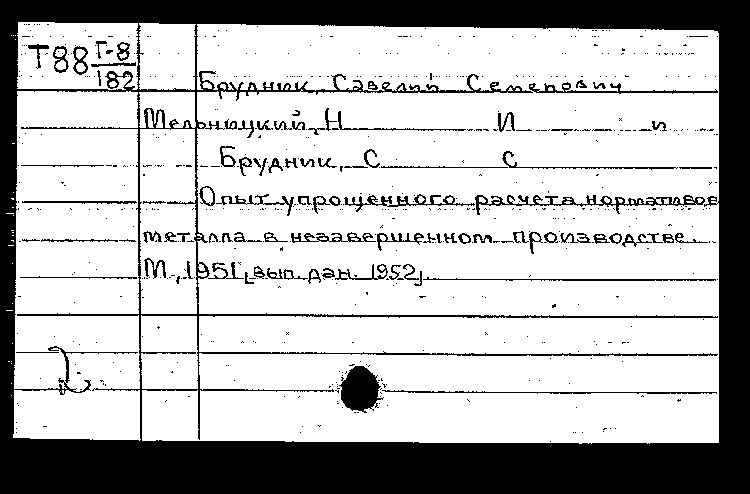 Т88 Г-8
182
Брудник, Савелий Семенович
Мельницкий, Н И и
Брудник, С С
Опыт упрощенного расчета нормативов
металла в незавершенном производстве.
М., 1951, [вып. дан. 1952].
2